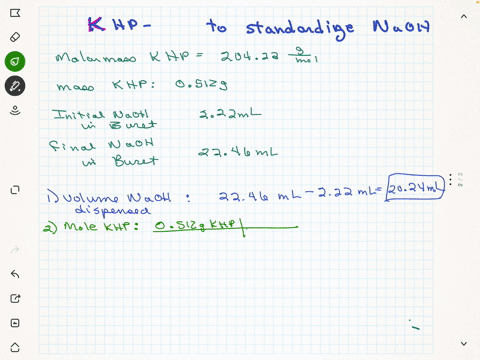 KHP - to standardize NaOH
Molar mass KHP = 204.22 g/mol
mass KHP: 0.512g
Initial NaOH 2.22mL
in Buret
final NaOH 22.46 mL
in Buret
1) Volume NaOH : 22.46 mL - 2.22 mL = 20.24 mL
dispensed
2) Mole KHP: 0.512g KHP